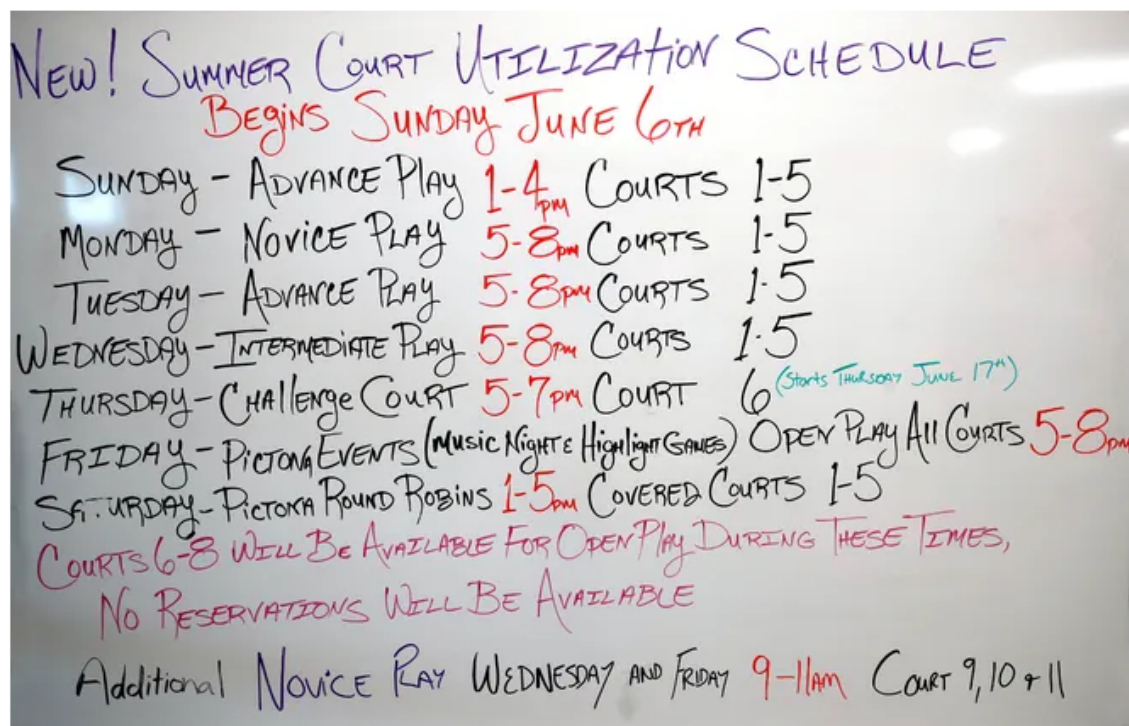 NEW! SUMMER COURT UTILIZATION SCHEDULE
BEGINS SUNDAY JUNE 6TH
SUNDAY - ADVANCE PLAY 1-4pm COURTS 1-5
MONDAY - NOVICE PLAY 5-8pm COURTS 1-5
TUESDAY - ADVANCE PLAY 5-8pm COURTS 1-5
WEDNESDAY - INTERMEDIATE PLAY 5-8pm COURTS 1-5
THURSDAY - CHALLENGE COURT 5-7pm COURT 6 (Starts THURSDAY JUNE 17th)
FRIDAY - PICTONA EVENTS (MUSIC NIGHT & HIGHLIGHT GAMES) OPEN PLAY ALL COURTS 5-8pm
SATURDAY - PICTONA ROUND ROBINS 1-5pm COVERED COURTS 1-5
COURTS 6-8 WILL BE AVAILABLE FOR OPEN PLAY DURING THESE TIMES,
NO RESERVATIONS WILL BE AVAILABLE
Additional NOVICE PLAY WEDNESDAY AND FRIDAY 9-11AM COURT 9, 10 & 11